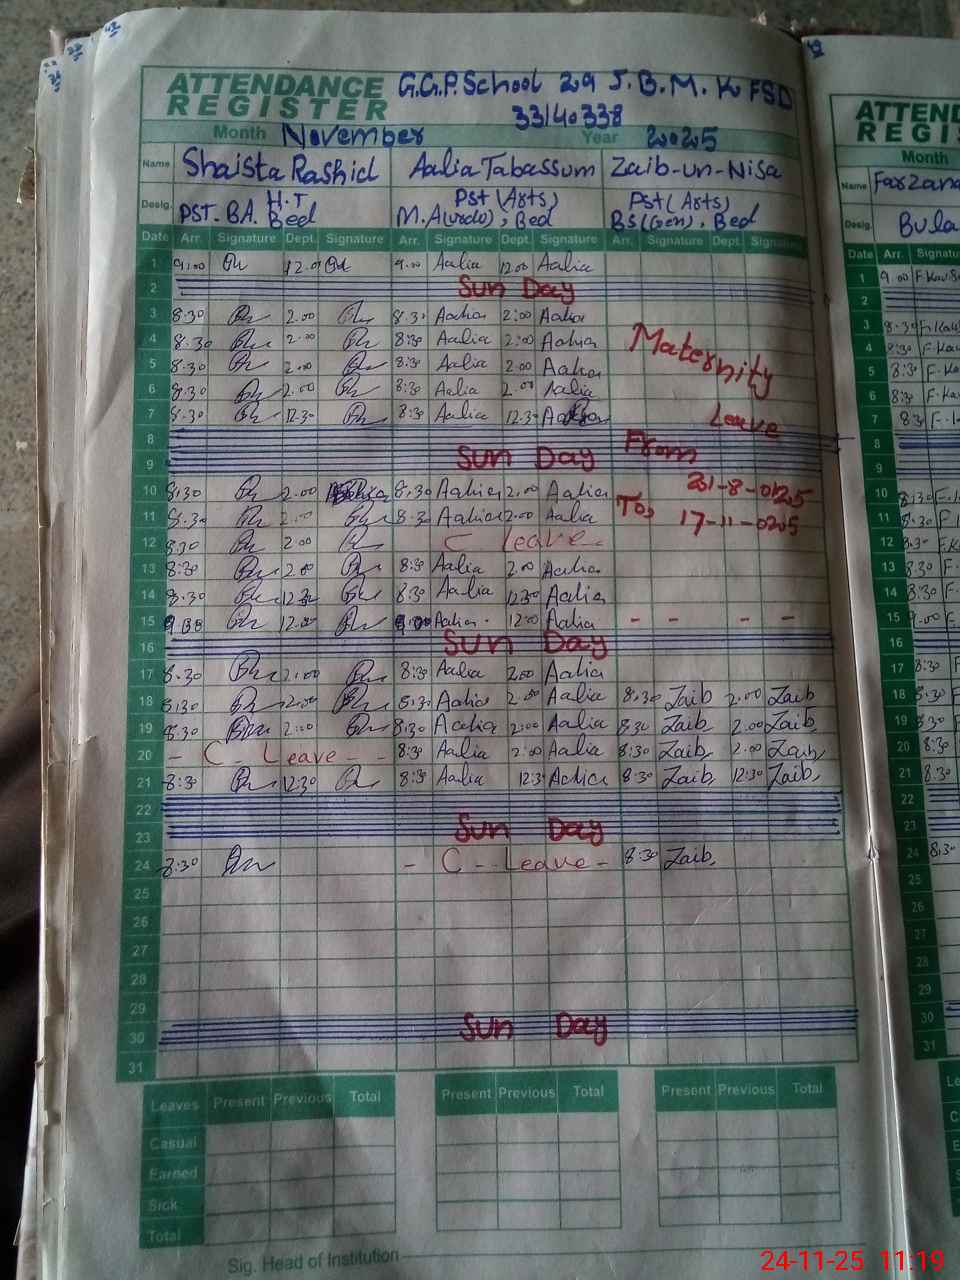 ATTENDANCE REGISTER G.G.P. School 29 J.B.M.K FSD
33140338
Month November Year 2025
Name Shaista Rashid Aalia Tabassum Zaib-un-Nisa
Desig. PST. BA. H.T Bed Pst (Arts) M.A(urdu), Bed Pst (Arts) BS(Gen), Bed
Date Arr. Signature Dept. Signature Arr. Signature Dept. Signature Arr. Signature Dept. Signature
1 9:00 12.00 9.00 Aalia 12.00 Aalia
2 Sun Day
3 8.30 2.00 8.30 Aalia 2:00 Aalia
4 8.30 2.00 8:30 Aalia 2:00 Aalia Maternity
5 8.30 2.00 8:30 Aalia 2.00 Aalia
6 8.30 2.00 8:30 Aalia 2.00 Aalia
7 8.30 12.30 8:30 Aalia 12.30 Leave
8
9 Sun Day From
10 8:30 2.00 8.30 Aalia 2.00 Aalia
11 8.30 2.00 8.30 Aalia 2.00 Aalia To,
12 8:30 2.00 C leave 17-11-
13 8:30 2.00 8:30 Aalia 2.00 Aalia
14 8.30 12.30 8:30 Aalia 12:30 Aalia
15 12.00 Aalia 12:00 Aalia - - - -
16 Sun Day
17 8.30 2:00 8:30 Aalia 2.00 Aalia
18 8:30 2.00 8:30 Aalia 2.00 Aalia 8.30 Zaib 2.00 Zaib
19 8.30 2:00 8:30 Aalia 2:00 Aalia 8:30 Zaib, 2.00 Zaib,
20 - C Leave - - 8:30 Aalia 2:00 Aalia 8:30 Zaib, 2.00 Zaib,
21 8:30 12:30 8:30 Aalia 12:30 Aalia 8:30 Zaib, 12:30 Zaib,
22
23 Sun Day
24 8:30 - C - Leave - 8:30 Zaib,
25
26
27
28
29
30 Sun Day
31
Leaves Present Previous Total Present Previous Total Present Previous Total
Casual
Earned
Sick
Total
Sig. Head of Institution
ATTEND
REGIS
Month
Name Farzana
Desig. Bula
Date Arr. Signatu
1 9.00
2
3 8:30
4 8:30
5 8:30
6 8:30
7 8:30
8
9
10 8:30
11 8.30
12 8.30
13 8.30
14 8:30
15 9.00
16
17 8:30
18 8:30
19 8:30
20 8:30
21 8.30
22
23
24 8:30
25
26
27
28
29
30
31
24-11-25 11:19